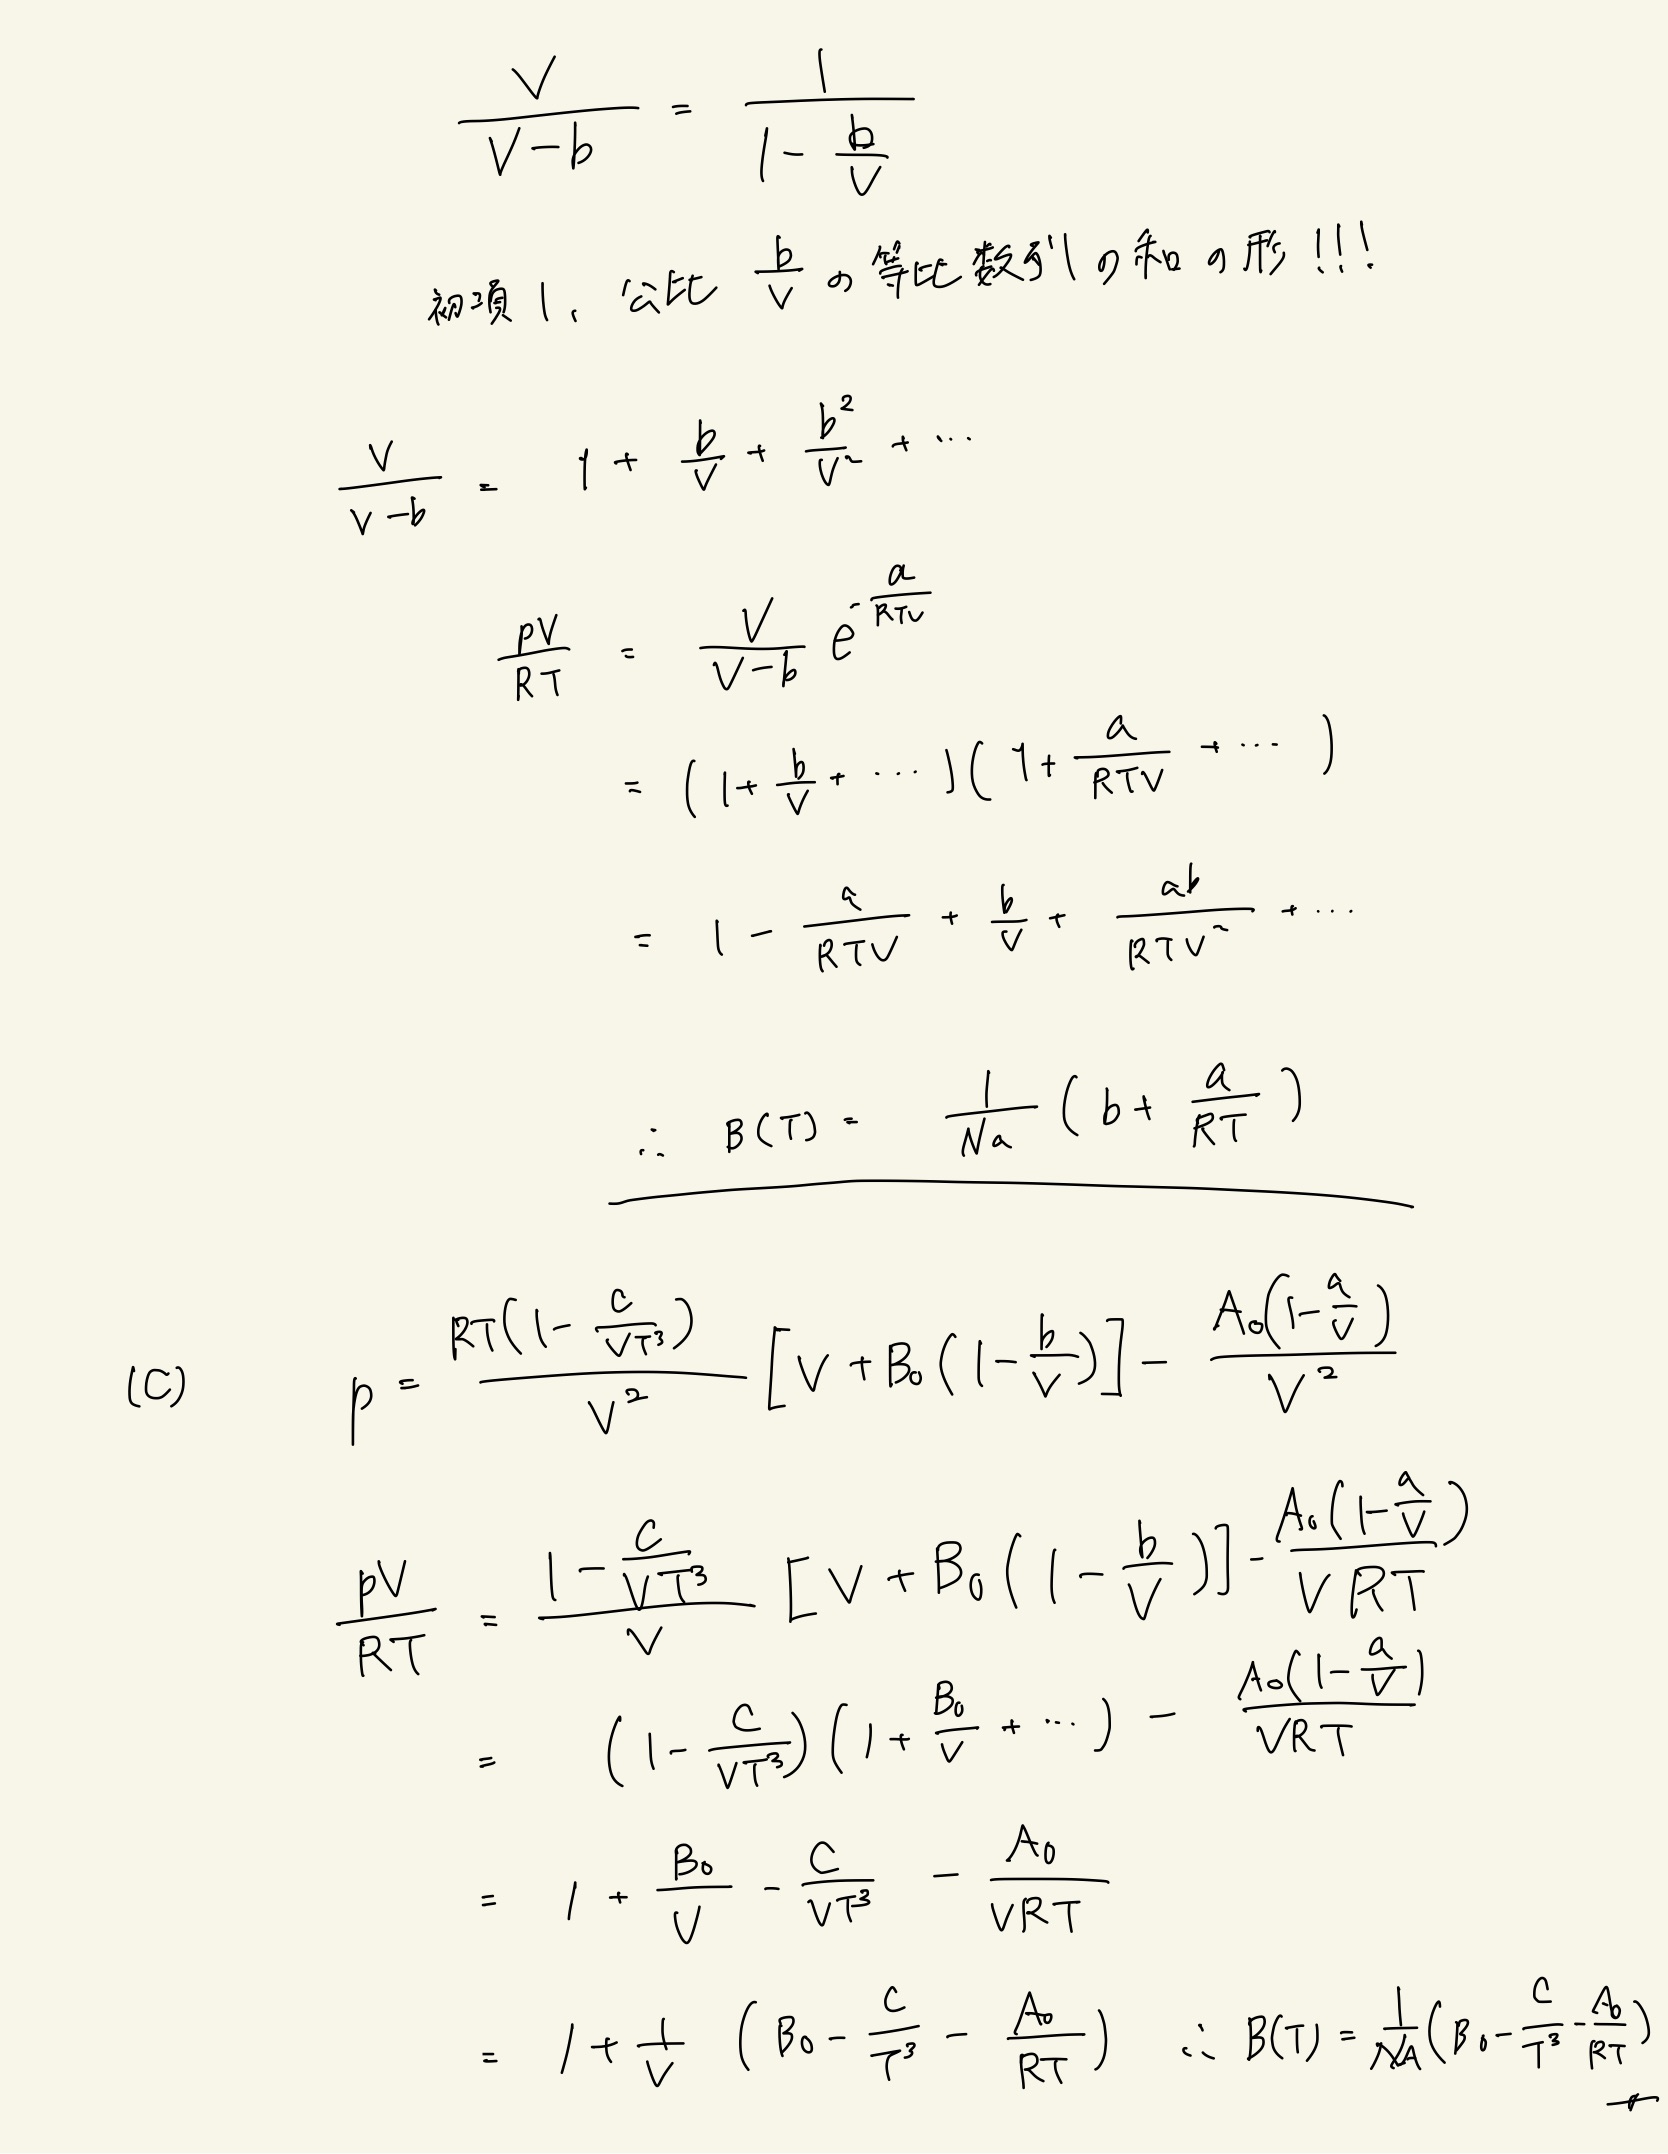 V/(V-b) = 1/(1 - b/V)
初項1、公比 b/V の等比数列の和の形!!!
V/(V-b) = 1 + b/V + b²/V² + ...
pV/RT = V/(V-b) e^(-a/RTV)
= (1 + b/V + ...)(1 + a/RTV + ...)
= 1 - a/RTV + b/V + ab/RTV² + ...
∴ B(T) = 1/Na (b + a/RT)
(C) p = RT(1 - c/VT³)/V² [V + B₀(1 - b/V)] - A₀(1 - a/V)/V²
pV/RT = (1 - c/VT³)/V [V + B₀(1 - b/V)] - A₀(1 - a/V)/VRT
= (1 - c/VT³)(1 + B₀/V + ...) - A₀(1 - a/V)/VRT
= 1 + B₀/V - c/VT³ - A₀/VRT
= 1 + 1/V (B₀ - c/T³ - A₀/RT) ∴ B(T) = 1/NA (B₀ - c/T³ - A₀/RT)